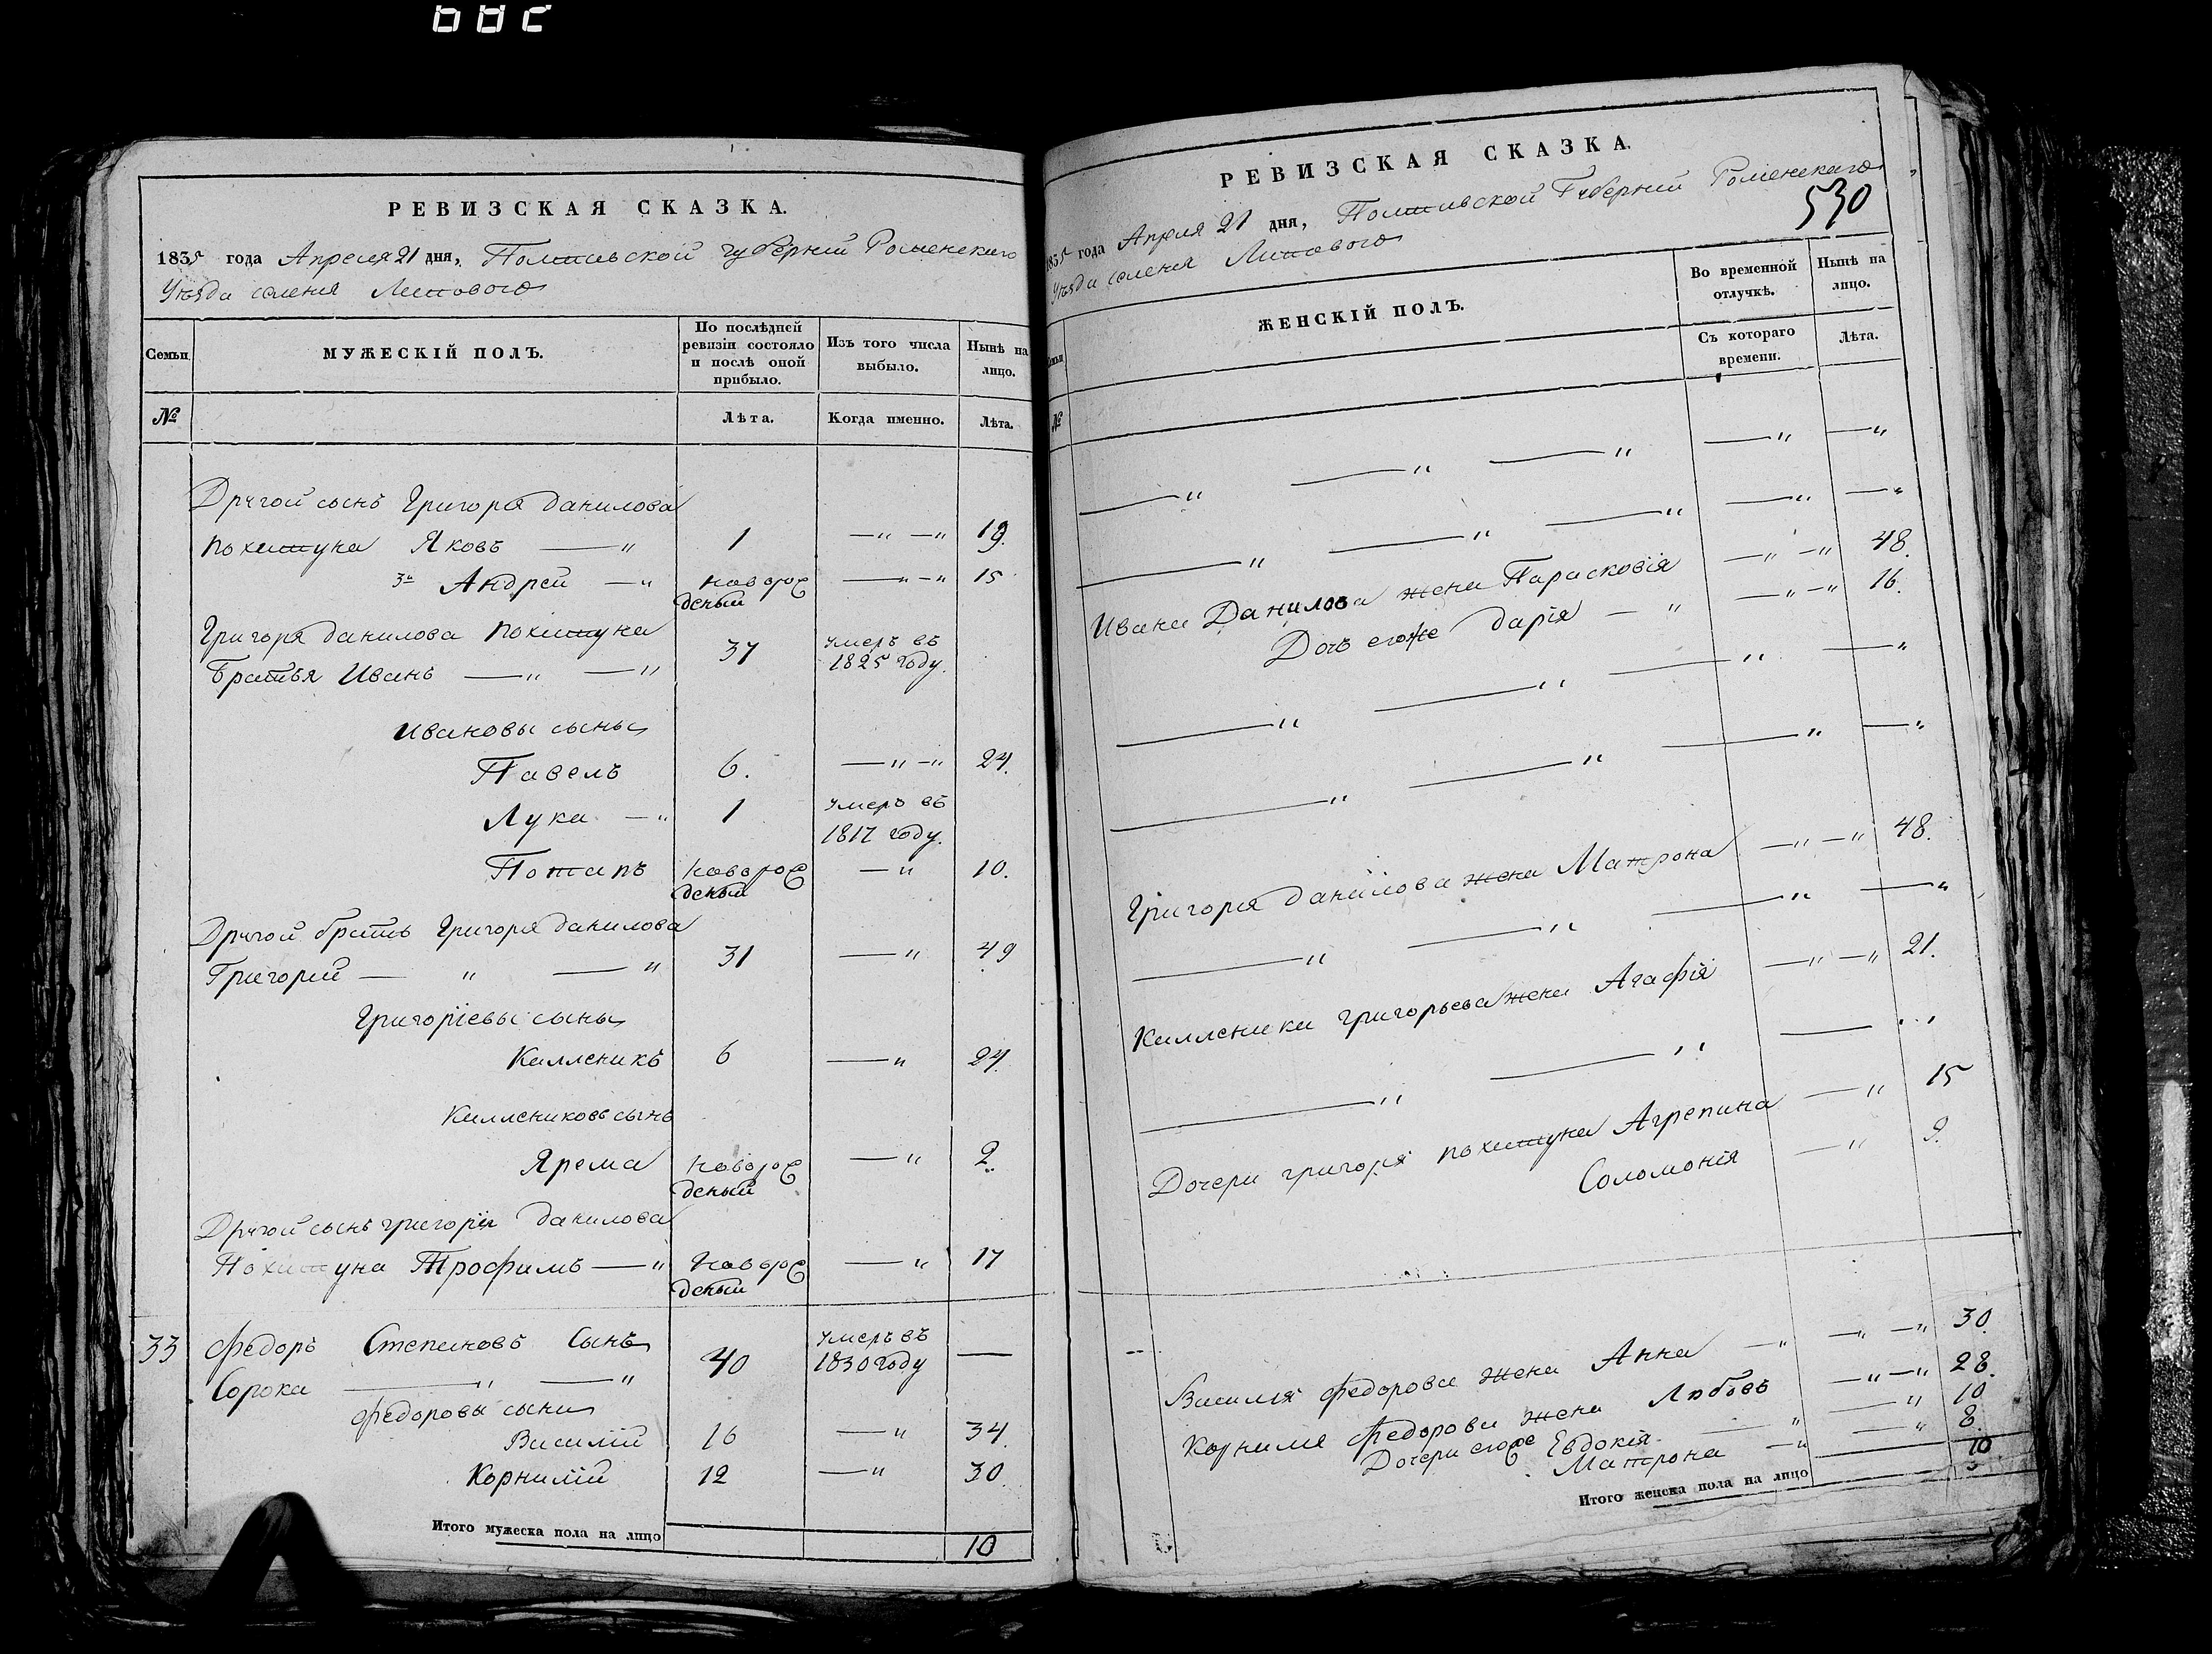 РЕВИЗСКАЯ СКАЗКА.
1835 года Апреля 21 дня, Полтавской губернии Роменского
Уезда селения Липового
Семьи
МУЖЕСКІЙ ПОЛЪ.
По послѣдней ревизіи состояло и послѣ оной прибыло.
Изъ того числа выбыло.
Нынѣ на лицо.
№
Лѣта.
Когда именно.
Лѣта.
Другой сынъ Григоря Данилова
Похитуна Яковъ —„ 1 —„ —„ 19.
3й Андрей —„ новорож —„ —„ 15
деный
Григоря Данилова Похитуна 37 умеръ въ
Братья Иванъ —„ —„ 1825 году.
Ивановы сыны
Павелъ 6. —„ —„ 24.
Лука —„ 1 умеръ въ
1817 году.
Потапъ новорож —„ 10.
деный
Другой братъ Григоря Данилова
Григорий —„ —„ 31 —„ 49
Григоріевы сыны
Калленикъ 6 —„ 24.
Каллениковъ сынъ
Ярема новорож —„ 2.
деный
Другой сынъ Григорія Данилова
Похитуна Трофимъ —„ новорож —„ 17
деный
33 Федоръ Степановъ Сынъ 40 умеръ въ —
Сорока —„ —„ 1830 году
Федоровы сыны
Василій 16 —„ 34.
Корнилій 12 —„ 30.
Итого мужеска пола на лицо 10
РЕВИЗСКАЯ СКАЗКА.
1835 года Апреля 21 дня, Полтавской Губернии Роменскаго
530
Уезда селения Липового
Семьи
ЖЕНСКІЙ ПОЛЪ.
Во временной отлучкѣ.
Нынѣ на лицо.
№
Съ котораго времени.
Лѣта.
—„ —„ —„ —„ —„
—„ —„ —„ —„ —„
Ивана Данилова жена Парасковія —„ —„ 48.
Дочь егоже Дарія —„ —„ —„ 16.
—„ —„ —„ —„
—„ —„ —„ —„
Григория Данилова жена Матрона —„ —„ 48.
—„ —„ —„ —„
Калленика Григорьева жена Агафія —„ —„ 21.
—„ —„ —„
Дочери Григоря Похитуна Агрепина —„ 15
Соломонія —„ 9.
Василия Федорова жена Анна —„ —„ —„ 30.
Корнилия Федорова жена Любовъ —„ —„ 28.
Дочери егоже Евдокія —„ —„ 10
Матрона —„ —„ 8
Итого женска пола на лицо 10